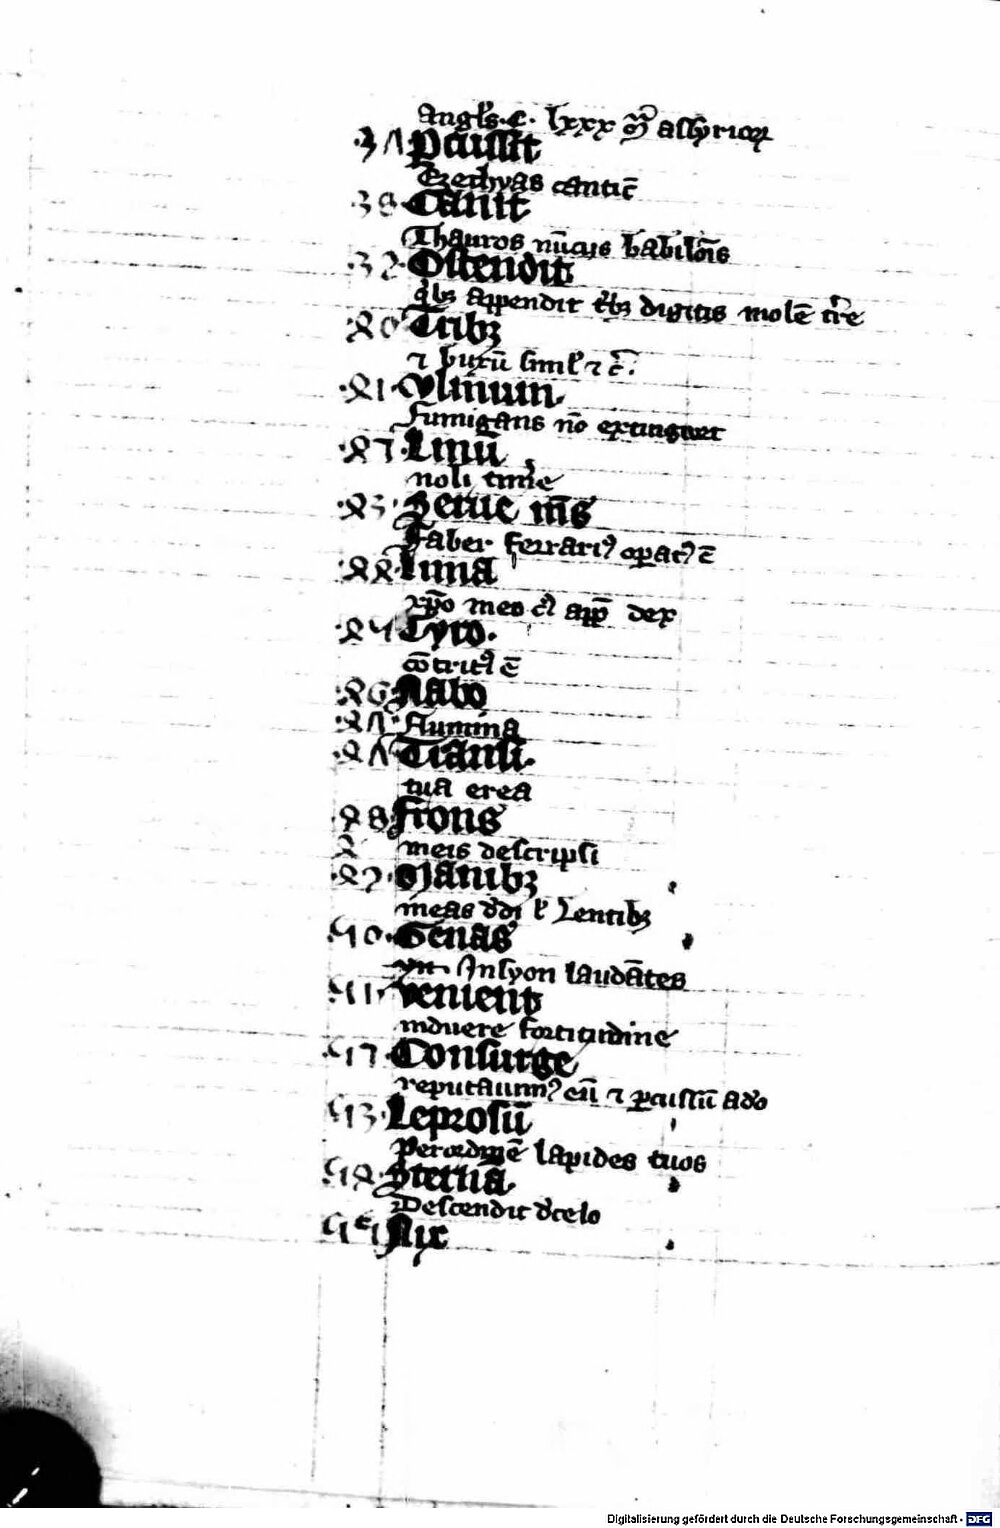 Angl's .c. lxxx m̄ assyrioꝝ
.37 Pcussit
Ezechyas cantic̄
.38. Canit
Thauros nūcijs babilōis
.39. Ostendit
qͥbꝫ appendit tͥbꝫ digitis molē tr̄e
.40 Tribꝫ
⁊ butyrū
.41. Vlmum.
Fumigans nō extinguet
.42. Linū
noli time
.43. Serue m̄s
Faber ferrariꝰ opatꝰ ē
.44. Luna
xp̄o meo
.45 Cyro.
cōtritꝰ ē
.46 Nabo
.47. Flumina
.47 Transi.
tua erea
.48 Frons
meis descripsi
.49. Manibꝫ
meas
.50. Genas
in syon laudātes
.51. Venient
induere fortitudine
.52 Consurge
reputauimꝰ eū ⁊ ꝑcussū a deo
.53. Leprosū
Per ordinē lapides tuos
.54. Sternā.
Descendit de celo
.55. Nix
Digitalisierung gefördert durch die Deutsche Forschungsgemeinschaft - DFG